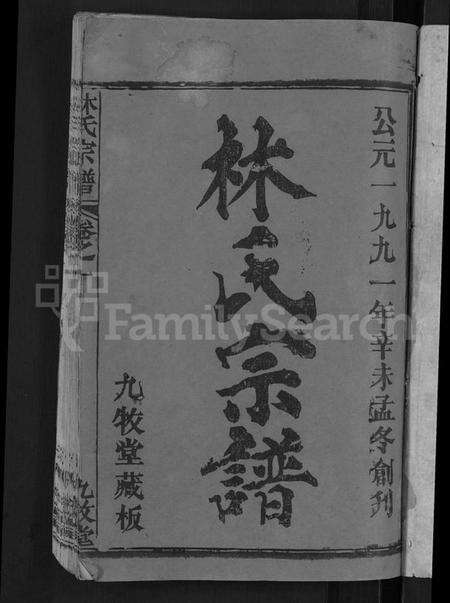 公元一九九一年辛未孟冬創刋
林氏宗譜
九牧堂藏板
林氏宗譜
卷之一
九牧堂
FamilySearch